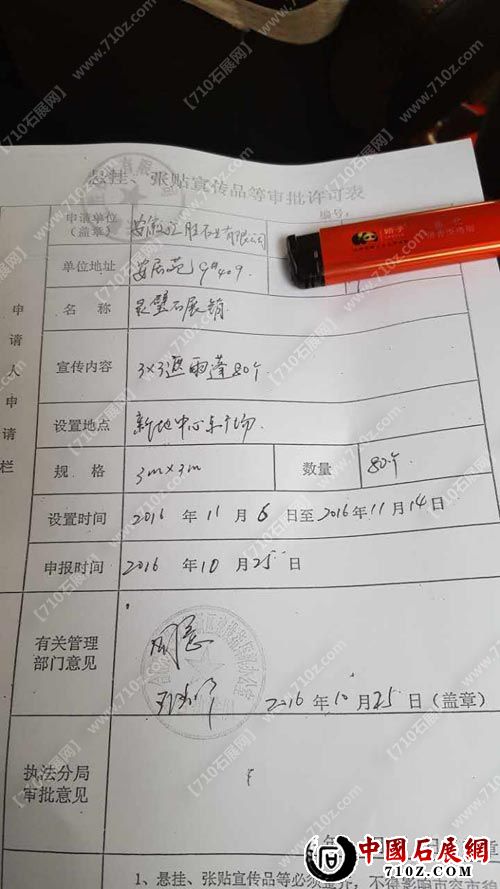 悬挂、张贴宣传品等审批许可表
编号:
申请单位
(盖章)
单位地址 安居苑 9#409
申请人申请栏
名 称 灵璧石展销
宣传内容 3×3遮雨蓬80个
设置地点
规 格 3m×3m 数量 80个
设置时间 2016 年 11 月 6 日至 2016年 11月 14日
申报时间 2016 年 10 月 25 日
有关管理
部门意见
同意
2016 年 10 月 25 日(盖章)
执法分局
审批意见
1、悬挂、张贴宣传品等必须
中國石展網
710Z.COM
【710石展网】
www.710z.com